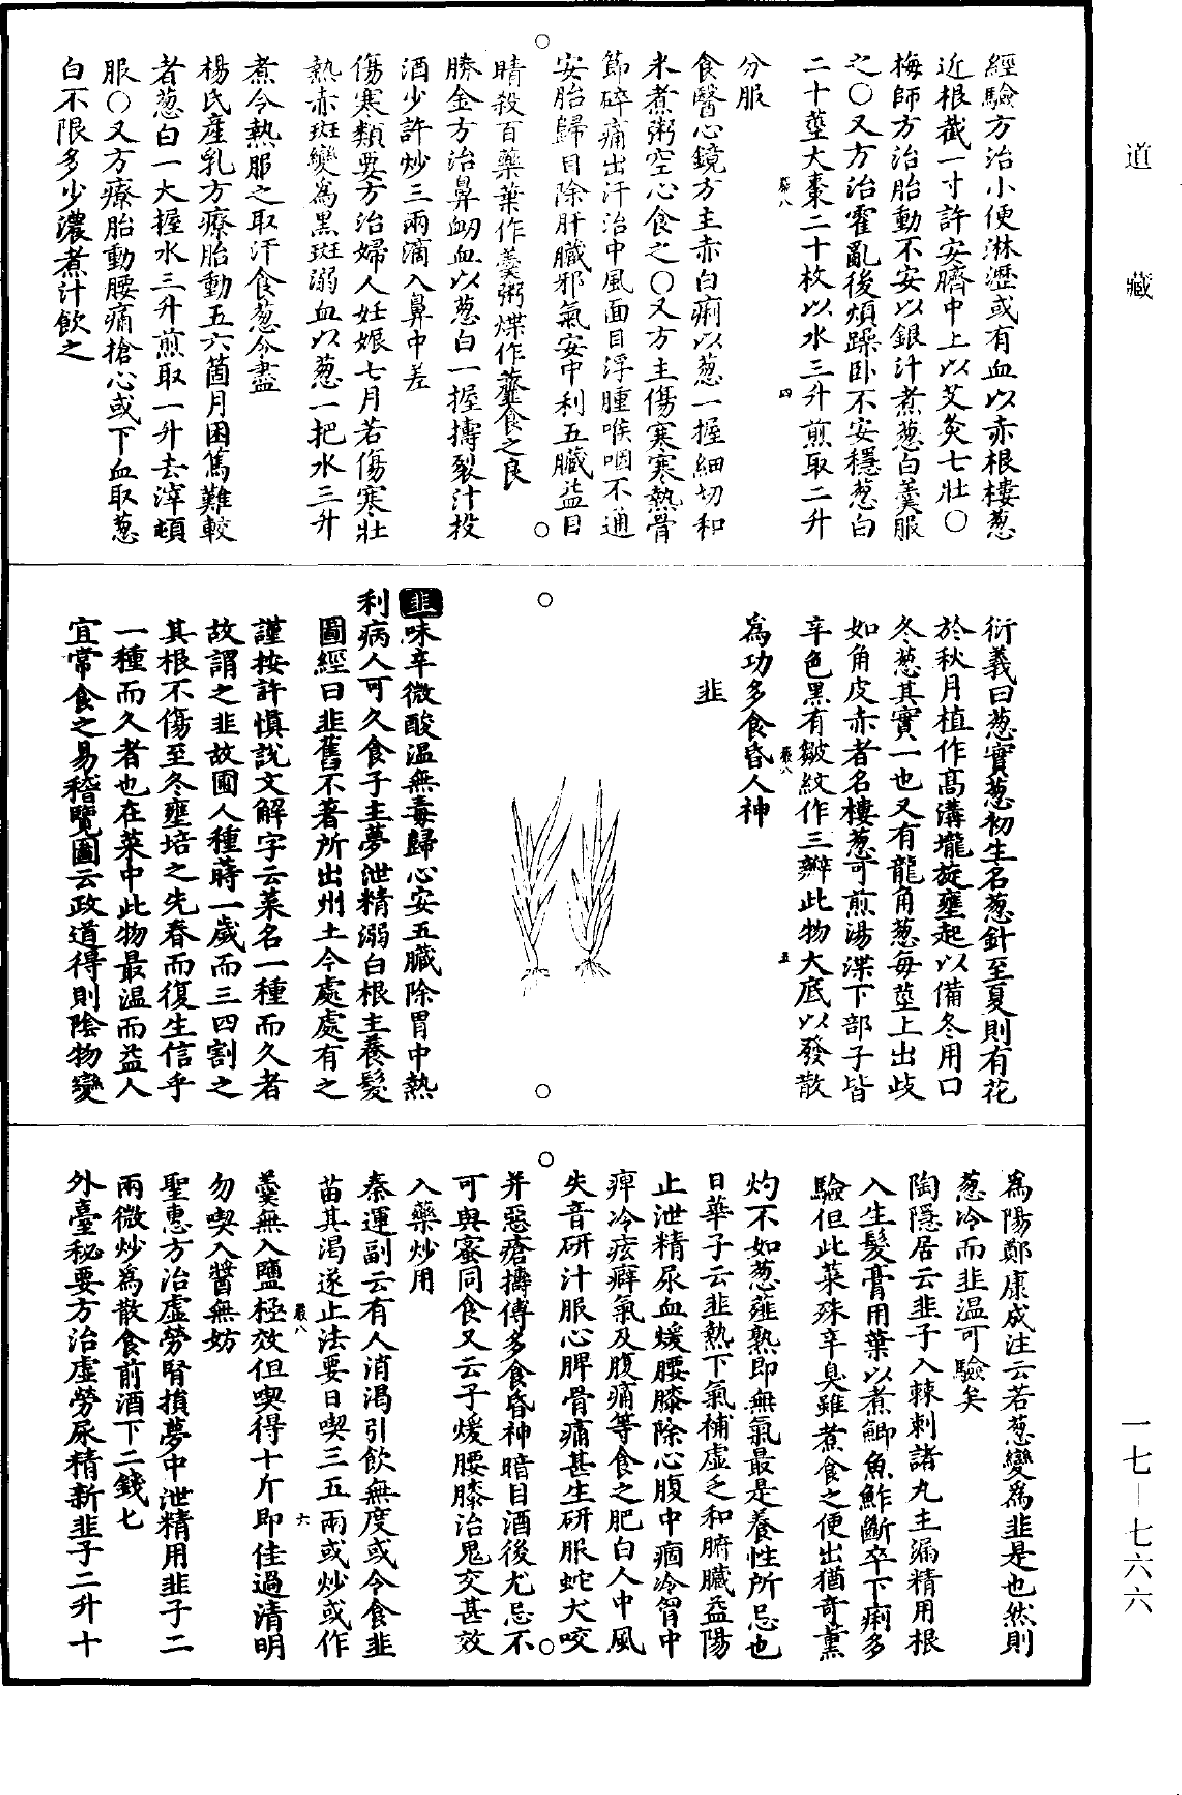 道藏
經驗方治小便淋瀝或有血以赤根樓葱
近根截一寸許安臍中上以艾灸七壯○
梅師方治胎動不安以銀汁煮葱白羹服
之○又方治霍亂後煩躁卧不安穩葱白
二十莖大棗二十枚以水三升煎取二升
分服
食醫心鏡方主赤白痢以葱一握細切和
米煮粥空心食之○又方主傷寒寒熱骨
節碎痛出汗治中風面目浮腫喉咽不通
安胎歸目除肝臟邪氣安中利五臟益目
睛殺百藥葉作羹粥煠作虀食之良
勝金方治鼻衂血以葱白一握擣裂汁投
酒少許炒三兩滴入鼻中差
傷寒類要方治婦人妊娠七月若傷寒壯
熱赤斑變為黑斑溺血以葱一把水三升
煮令熱服之取汗食葱令盡
楊氏產乳方療胎動五六箇月困篤難較
者葱白一大握水三升煎取一升去滓頓
服○又方療胎動腰痛搶心或下血取葱
白不限多少濃煮汁飲之
衍義曰葱實葱初生名葱針至夏則有花
於秋月植作高溝壠旋壅起以備冬用口
冬葱其實一也又有龍角葱每莖上出歧
如角皮赤者名樓葱可煎湯渫下部子皆
辛色黑有皺紋作三瓣此物大底以發散
為功多食昏人神
韭
韭味辛微酸溫無毒歸心安五臟除胃中熱
利病人可久食子主夢泄精溺白根主養髮
圖經曰韭舊不著所出州土今處處有之
謹按許慎說文解字云菜名一種而久者
故謂之韭故圃人種蒔一歲而三四割之
其根不傷至冬壅培之先春而復生信乎
一種而久者也在菜中此物最温而益人
宜常食之易稽覽圖云政道得則陰物變
為陽鄭康成注云若葱變為韭是也然則
葱冷而韭温可驗矣
陶隱居云韭子入棘刺諸丸主漏精用根
入生髮膏用葉以煮鯽魚鮓斷卒下痢多
驗但此菜殊辛臭雖煮食之便出猶奇薰
灼不如葱薤熟即無氣最是養性所忌也
日華子云韭熱下氣補虛乏和腑臟益陽
止泄精尿血煖腰膝除心腹中痼冷胷中
痺冷痃癖氣及腹痛等食之肥白人中風
失音研汁服心脾骨痛甚生研服蛇犬咬
并惡瘡擣傅多食昏神暗目酒後尤忌不
可與蜜同食又云子煖腰膝治鬼交甚效
入藥炒用
秦運副云有人消渴引飲無度或令食韭
苗其渴遂止法要日喫三五兩或炒或作
羹無入鹽極效但喫得十斤即佳過清明
勿喫入醬無妨
聖惠方治虛勞腎損夢中泄精用韭子二
兩微炒為散食前酒下二錢七
外臺秘要方治虛勞尿精新韭子二升十
一七—七六六